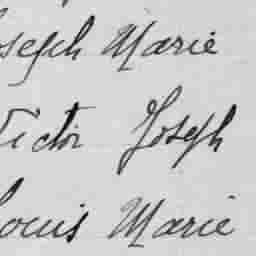 Joseph Marie
Victor Joseph
Louis Marie